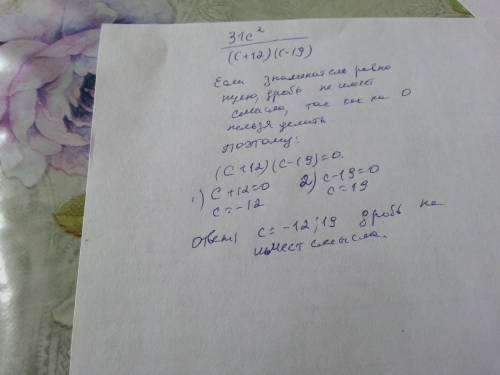 31c²
(c+12)(c-19)
Если знаменатель равно
нулю, дробь не имеет
смысла, так как на 0
нельзя делить
поэтому:
(c+12)(c-19)=0.
1) c+12=0 2) c-19=0
c=-12 c=19
Ответ: c=-12; 19 дробь не
имеет смысла.